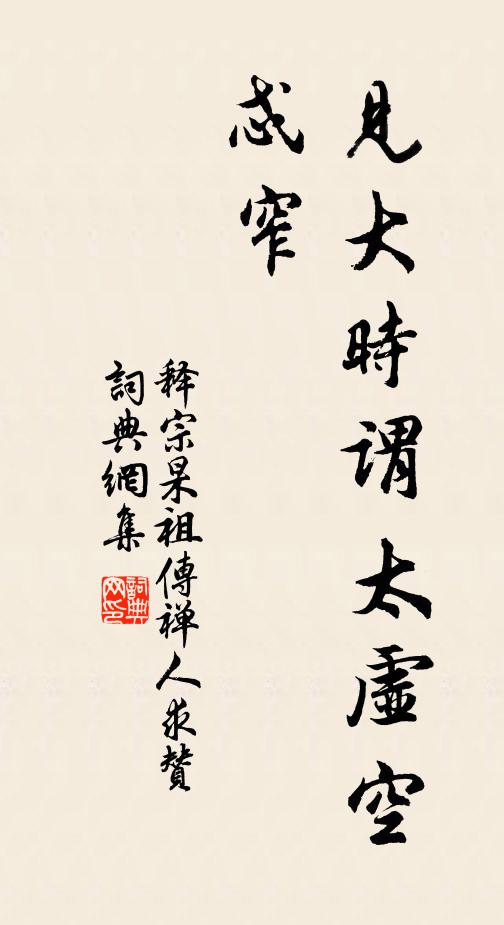 見大時謂太虛空
忒窄
释宗杲祖傳禅人求賛
詞典網集
詞典
网印